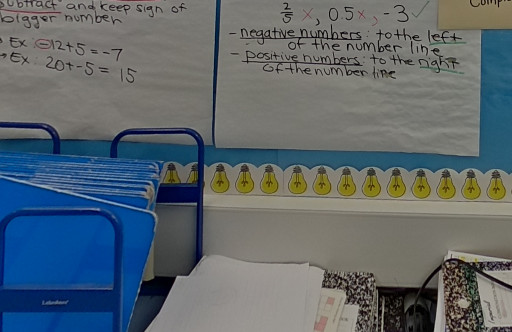 subtract and keep sign of
bigger number
Ex: -12+5 = -7
Ex: 20+-5 = 15
2/5 x, 0.5 x, -3 ✓
- negative numbers: to the left
of the number line
- positive numbers: to the right
of the number line